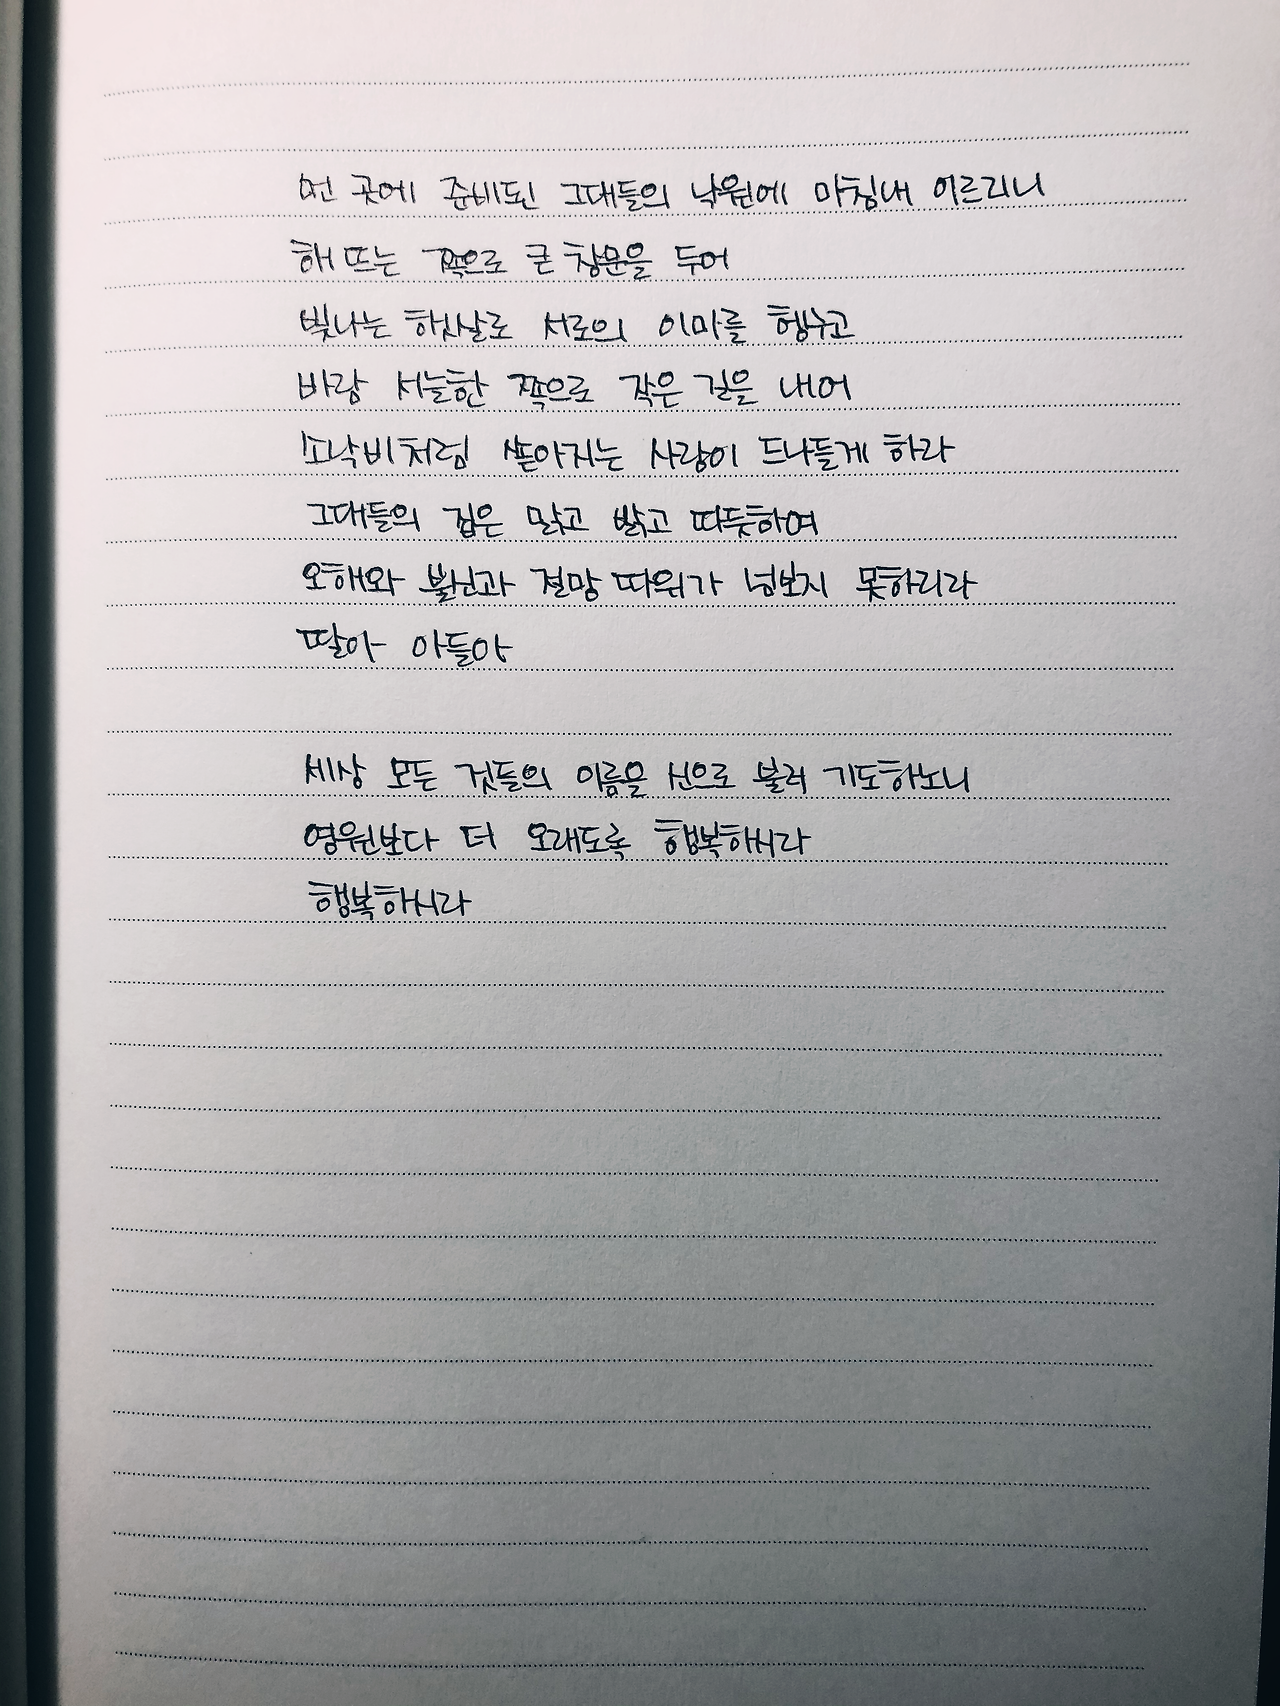 먼 곳에 준비된 그대들의 낙원에 마침내 이르리니
해 뜨는 쪽으로 큰 창문을 두어
빛나는 햇살로 서로의 이마를 헹구고
바람 서늘한 쪽으로 작은 길을 내어
소낙비처럼 쏟아지는 사랑이 드나들게 하라
그대들의 집은 맑고 밝고 따듯하여
오해와 불신과 절망 따위가 넘보지 못하리라
딸아 아들아
세상 모든 것들의 이름을 신으로 불러 기도하노니
영원보다 더 오래도록 행복하시라
행복하시라